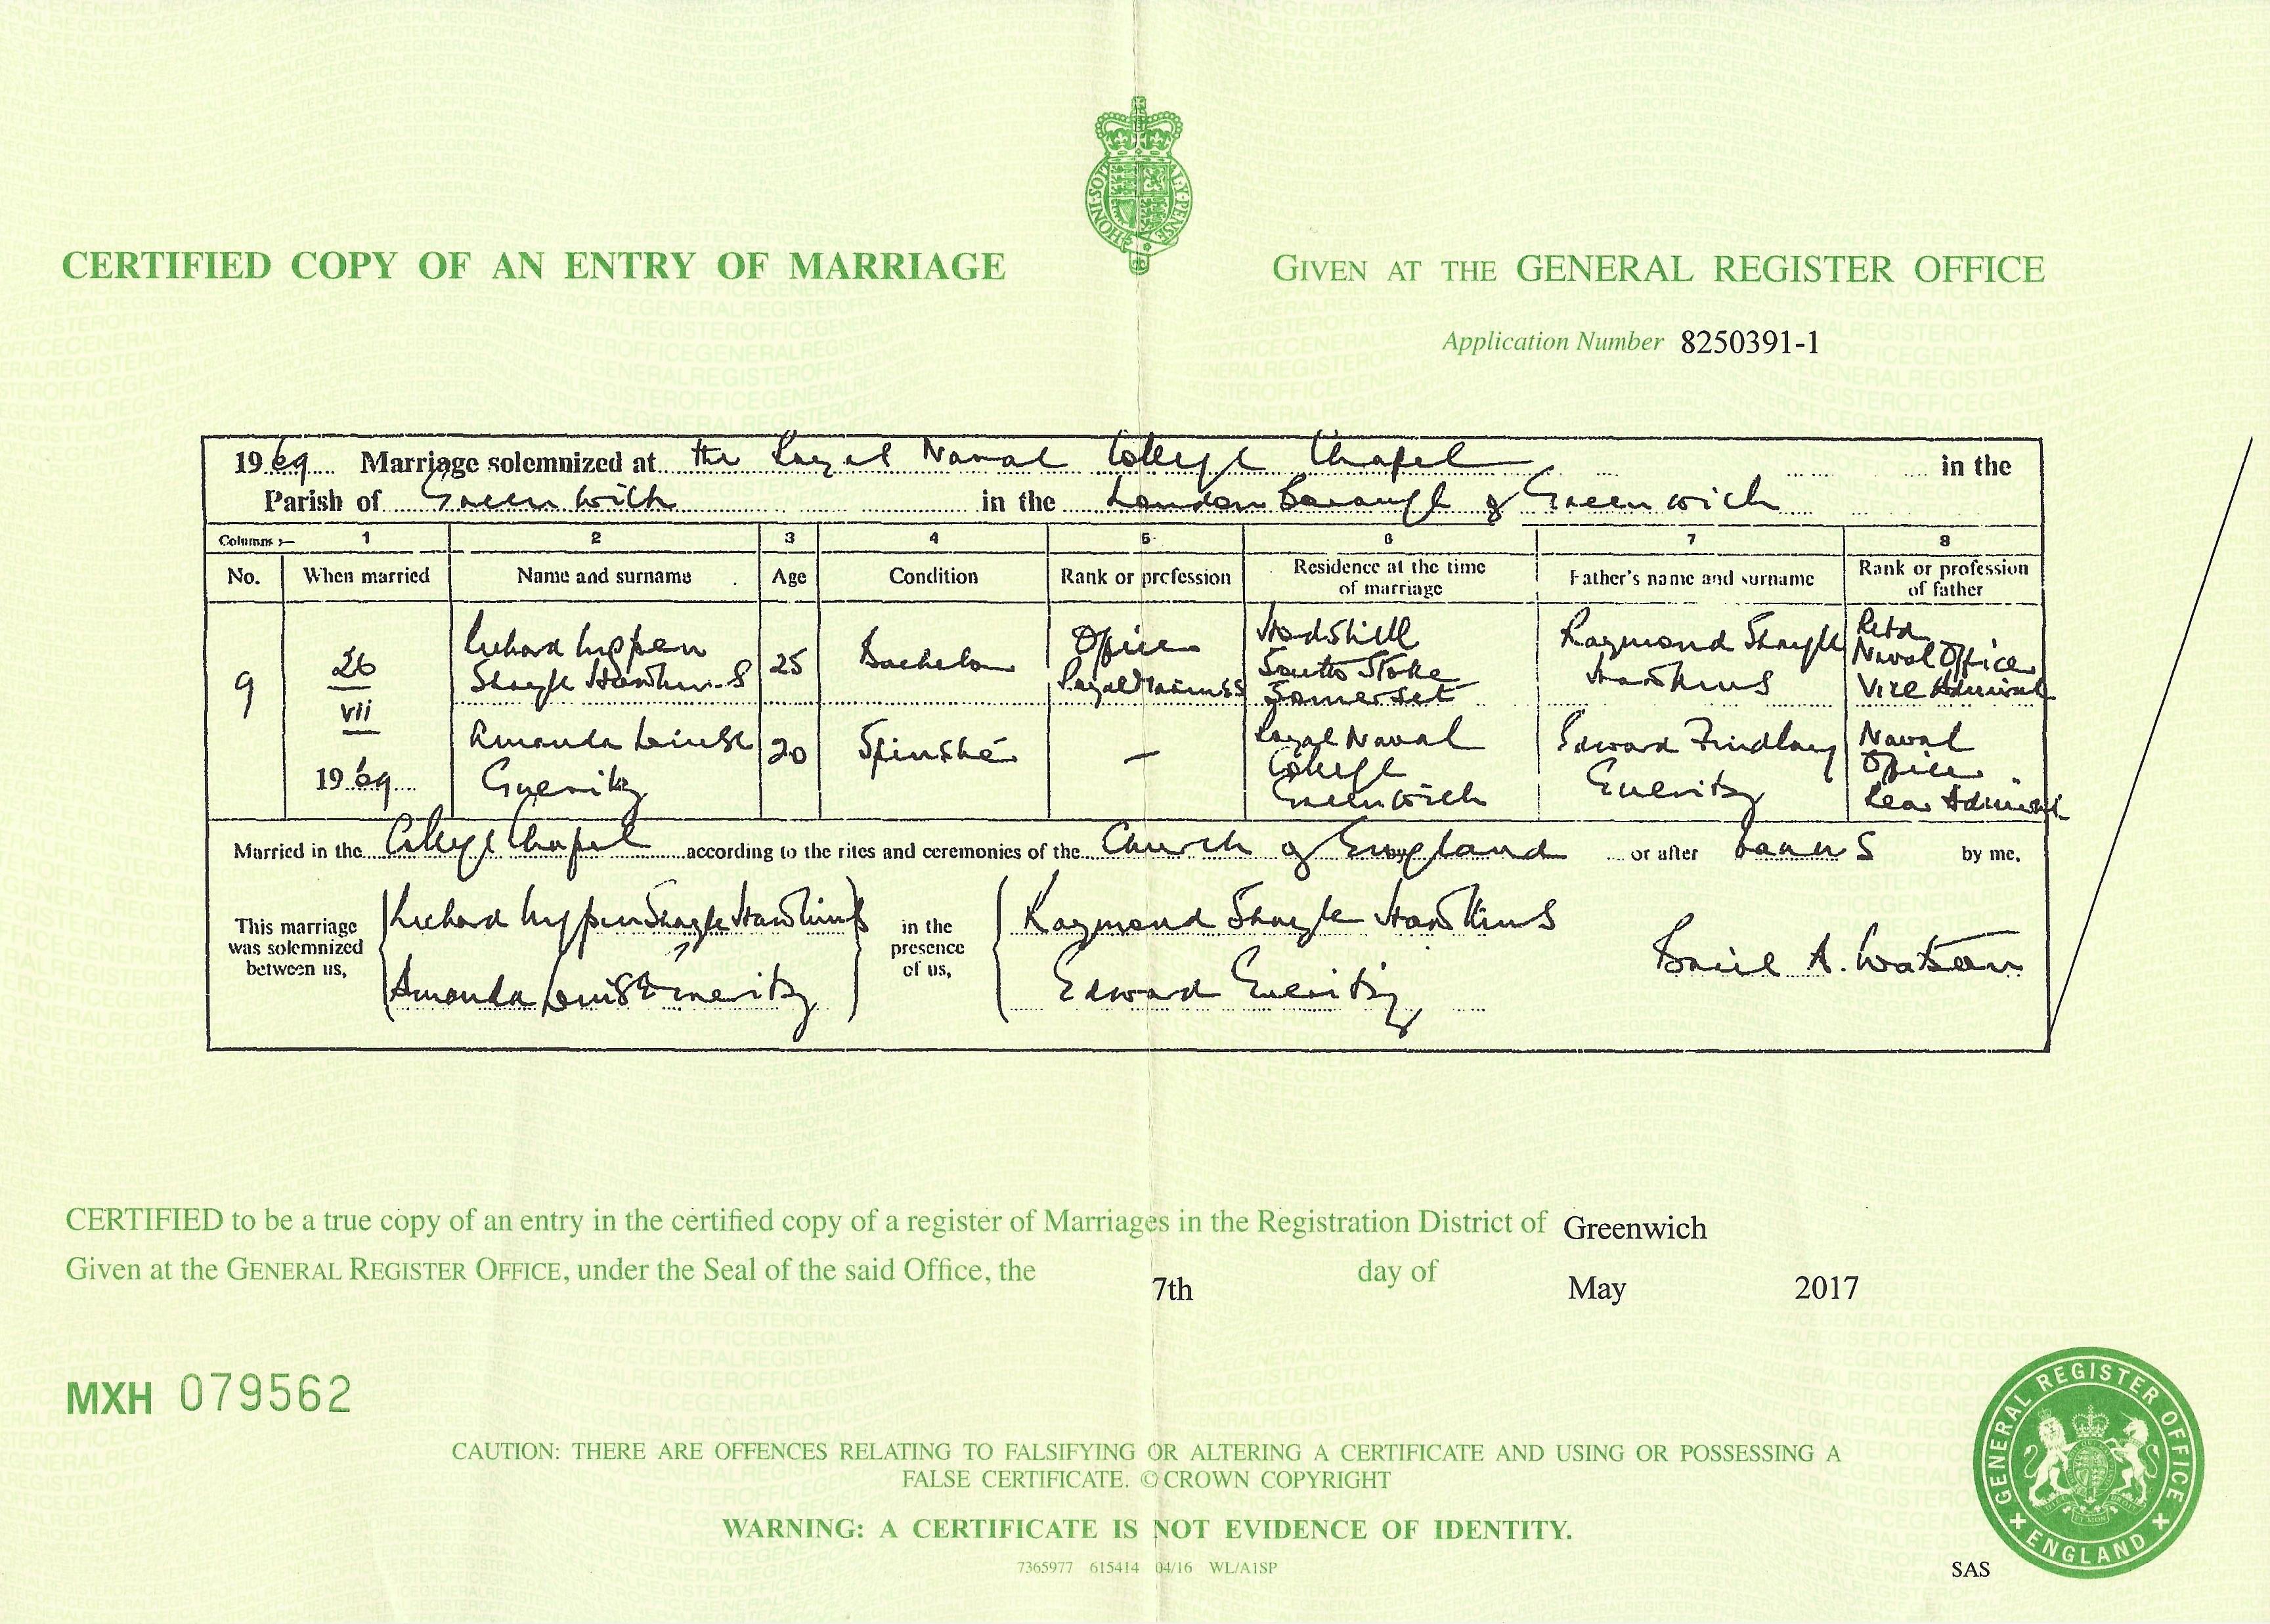 HONI·SOIT AL·Y·PENSE
CERTIFIED COPY OF AN ENTRY OF MARRIAGE
GIVEN AT THE GENERAL REGISTER OFFICE
Application Number 8250391-1
1969 Marriage solemnized at the Royal Naval College Chapel in the
Parish of Greenwich in the London Borough of Greenwich
Columns :— 1 2 3 4 5 6 7 8
No. When married Name and surname Age Condition Rank or profession Residence at the time of marriage Father's name and surname Rank or profession of father
9
26
vii
1969
Richard
Shayle Hawkins
25
Bachelor
Officer
Royal Marines
South Stoke
Somerset
Raymond Shayle
Hawkins
Retd
Naval Officer
Vice Admiral
Amanda Louise
Gueritz
20
Spinster
—
Royal Naval
College
Greenwich
Edward Findlay
Gueritz
Naval
Officer
Rear Admiral
Married in the College Chapel according to the rites and ceremonies of the Church of England or after banns by me,
This marriage
was solemnized
between us,
Richard Shayle Hawkins
Amanda Louise Gueritz
in the
presence
of us,
Raymond Shayle Hawkins
Edward Gueritz
A. Watson
CERTIFIED to be a true copy of an entry in the certified copy of a register of Marriages in the Registration District of Greenwich
Given at the GENERAL REGISTER OFFICE, under the Seal of the said Office, the 7th day of May 2017
MXH 079562
CAUTION: THERE ARE OFFENCES RELATING TO FALSIFYING OR ALTERING A CERTIFICATE AND USING OR POSSESSING A
FALSE CERTIFICATE. © CROWN COPYRIGHT
WARNING: A CERTIFICATE IS NOT EVIDENCE OF IDENTITY.
7365977 615414 04/16 WL/A1SP
SAS
GENERAL REGISTER OFFICE
ENGLAND